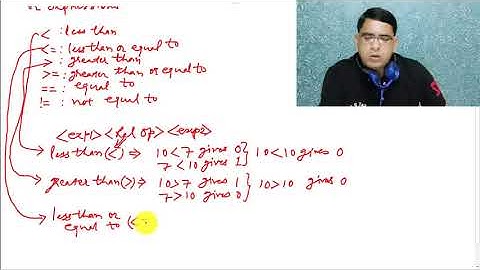 or expressions
< : less than
<= : less than or equal to
> : greater than
>= : greater than or equal to
== : equal to
!= : not equal to
<exp1> <Rel op> <exp2>
less than (<) ⇒ 10 < 7 gives 0 } 10 < 10 gives 0
7 < 10 gives 1
greater than (>) ⇒ 10 > 7 gives 1 } 10 > 10 gives 0
7 > 10 gives 0
less than or
equal to (<